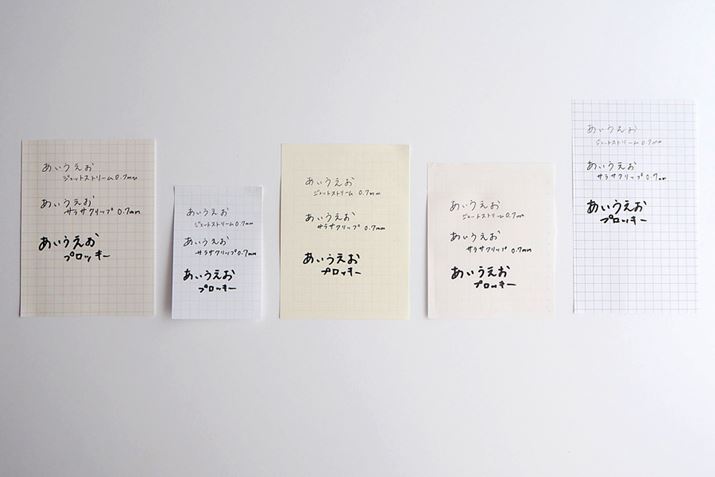 あいうえお
ジェットストリーム 0.7mm
あいうえお
サラサクリップ 0.7mm
あいうえお
プロッキー
あいうえお
ジェットストリーム 0.7mm
あいうえお
サラサクリップ 0.7mm
あいうえお
プロッキー
あいうえお
ジェットストリーム 0.7mm
あいうえお
サラサクリップ 0.7mm
あいうえお
プロッキー
あいうえお
ジェットストリーム 0.7mm
あいうえお
サラサクリップ 0.7mm
あいうえお
プロッキー
あいうえお
ジェットストリーム 0.7mm
あいうえお
サラサクリップ 0.7mm
あいうえお
プロッキー